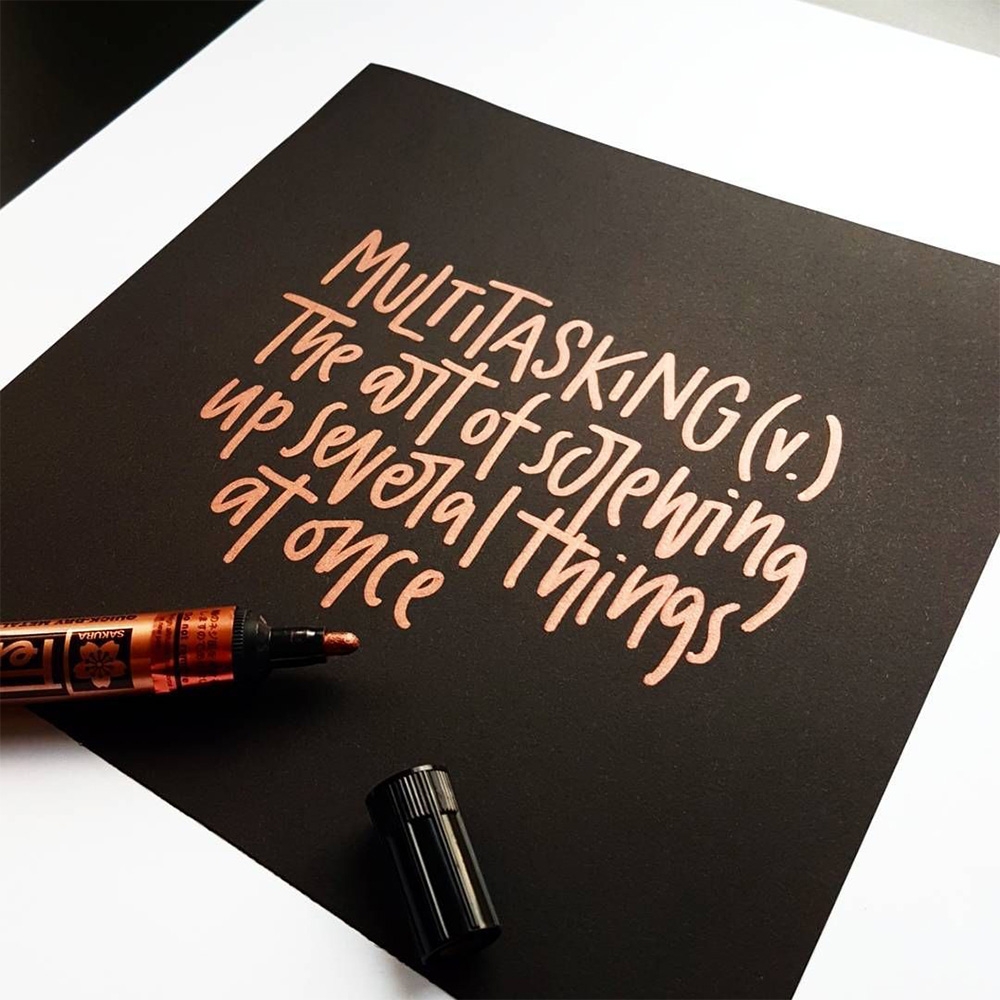 MULTITASKING (v.)
The art of screwing
up several things
at once
QUICK-DRY METAL
SAKURA